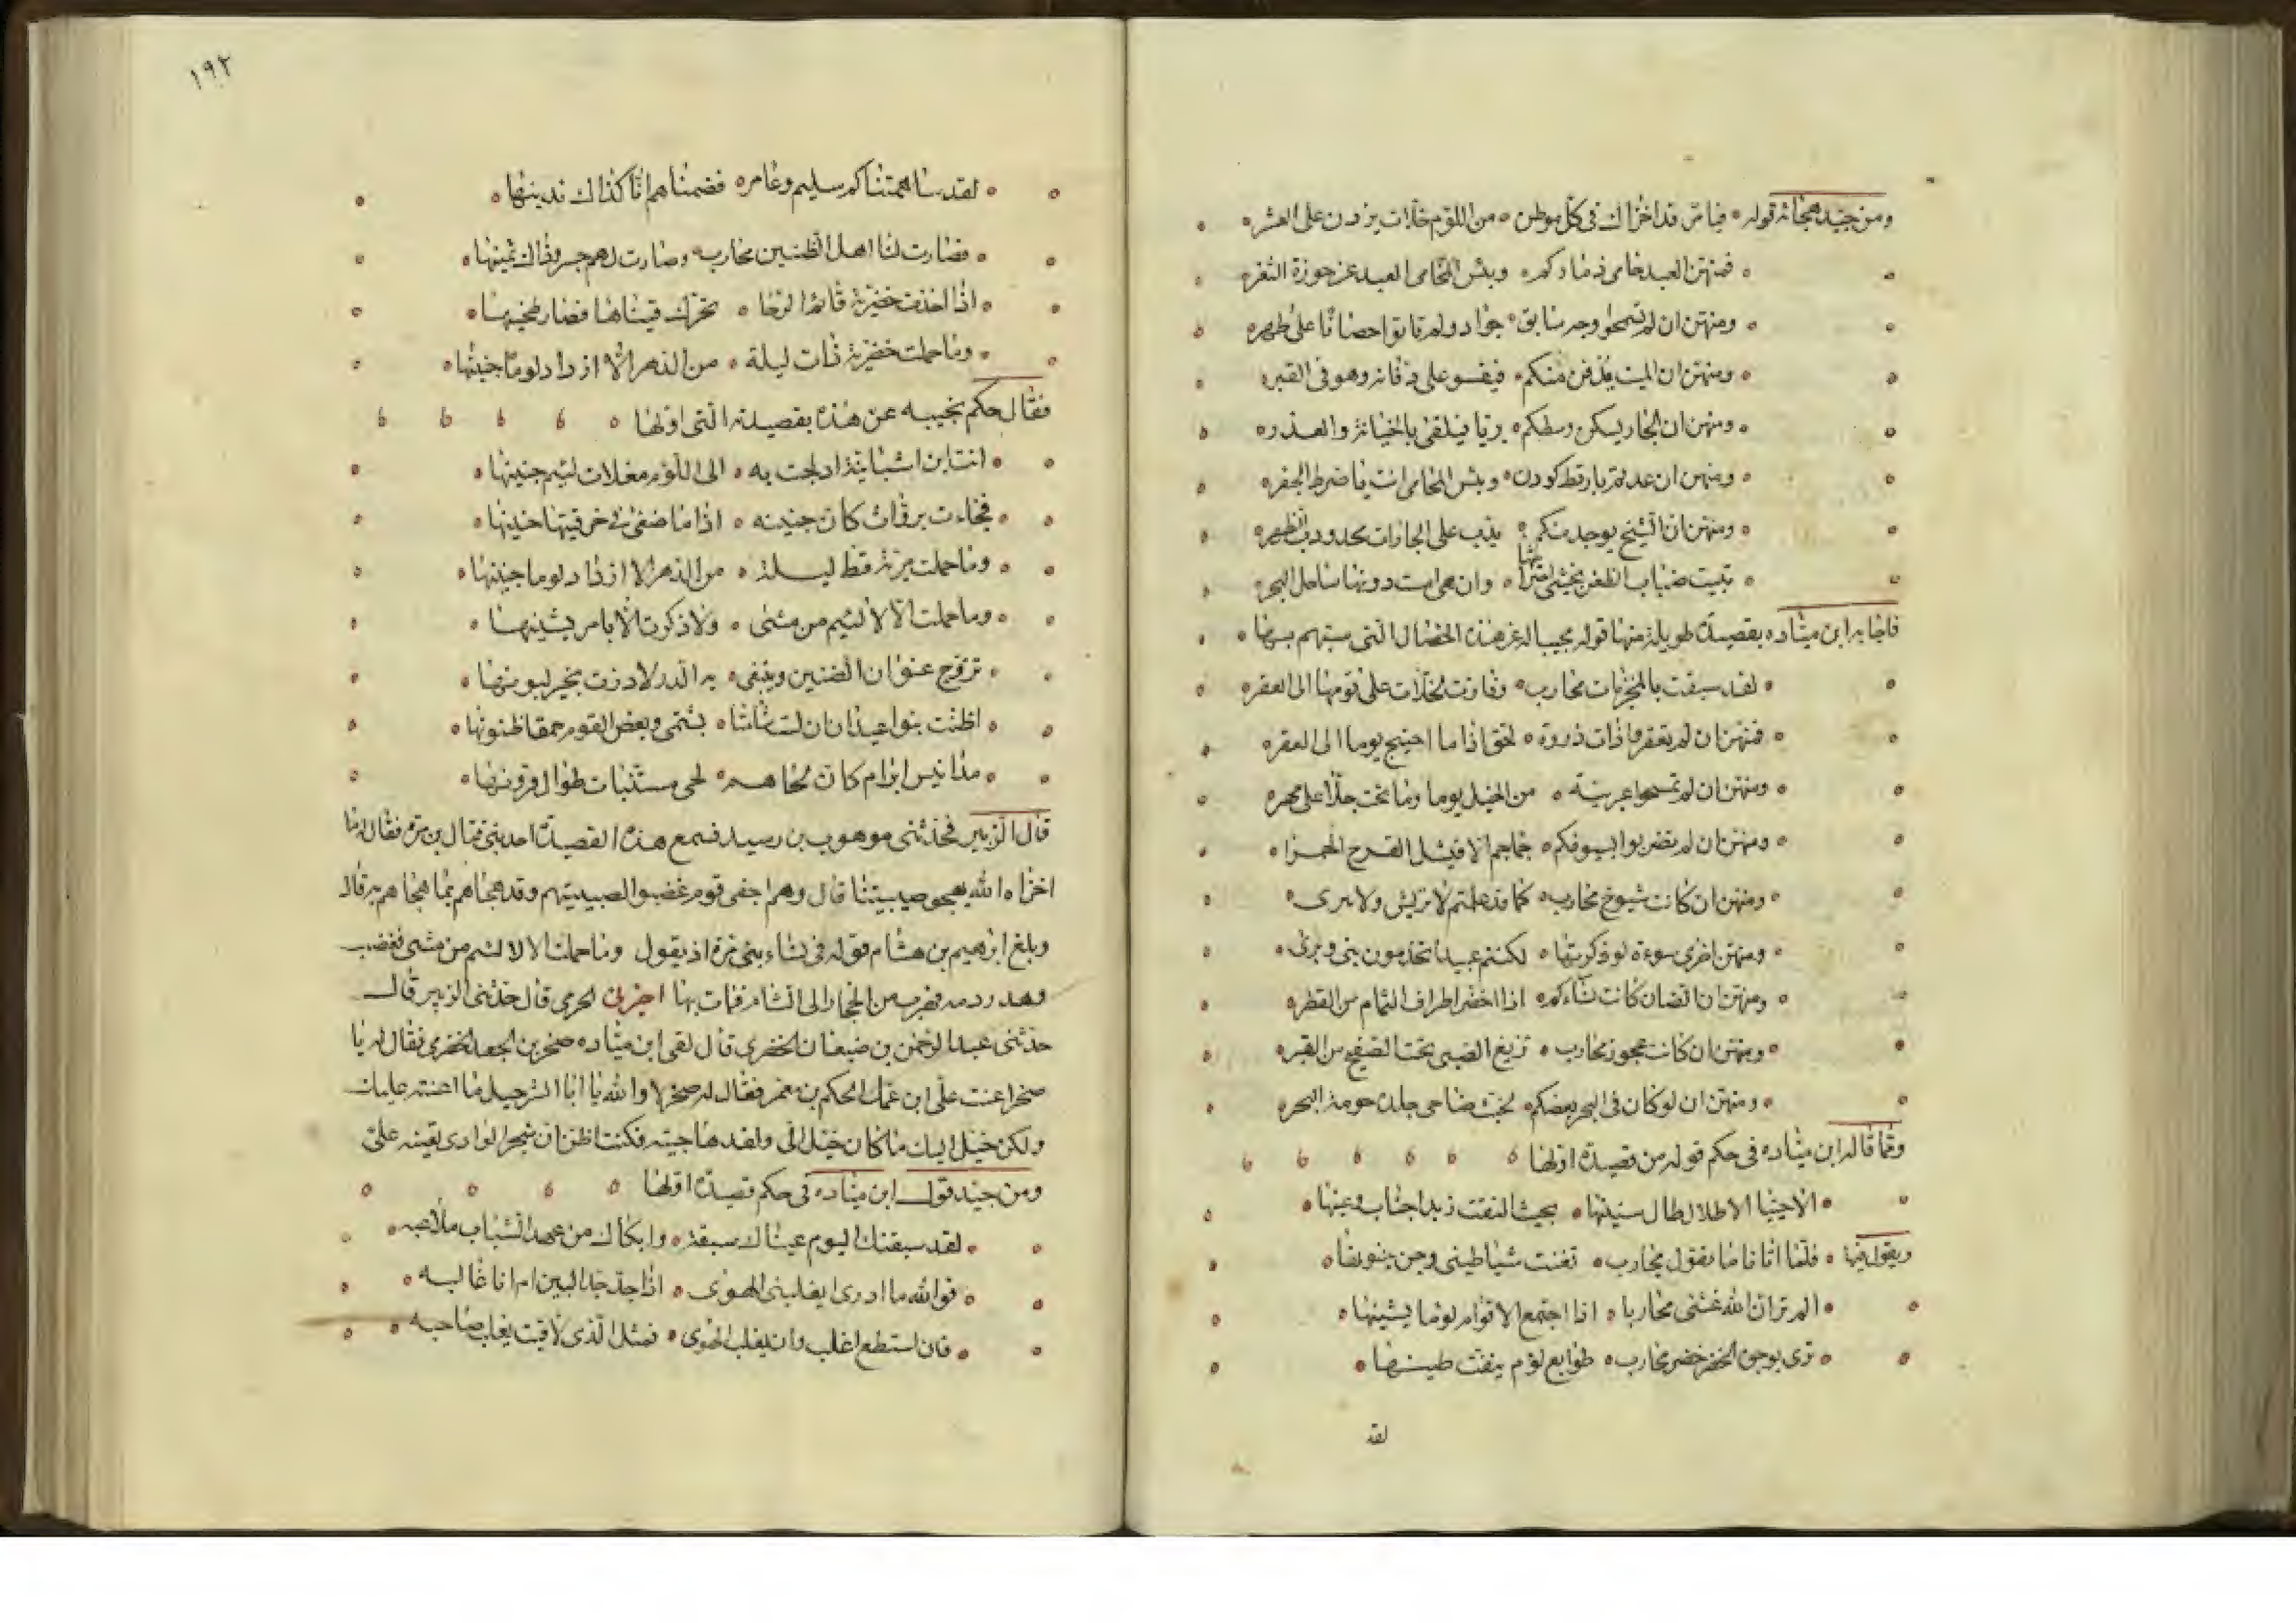 ومن جيد هجائه قوله فيا مر قد اخزاك في كل موطن من اللؤم خلات يزدن على العشر
فمنهن العبد حامي ذماركم وبئس المحامي العبد عن حوزة الثغر
ومنهن ان لم تمسحوا وجه سابق جواد ولم تاتوا حصانا على طهر
ومنهن ان الميت يدفن منكم فيفسو على دفانه وهو في القبر
ومنهن ان الجار يسكن وسطكم بريا فيلقى بالخيانة والغدر
ومنهن ان عدتم بارقط كودن وبئس المحامي انت يا ضرط الجفر
ومنهن ان الشيخ يوجد منكم يدب على الجارات محدودب الظهر
تبيت ضباب الضغن يخشى وان هي امست دونها ساحل البحر
فاجابه ابن مياده بقصيدة طويلة منها قوله مجيبا له عن هذه الخصال التي سبهم بها
لقد سبقت بالمخزيات محارب وفازت بخلات على قومها الى العقر
فمنهن ان لم تعقروا ذات ذروة لحق اذا ما احتيج يوما الى العقر
ومنهن ان لم تمسحوا عربية من الخيل يوما وما تحت جلا على مهر
ومنهن ان لم تضربوا بسيوفكم جماجم الا فيشل القرح الحمرا
ومنهن ان كانت شيوخ محارب كما قد علمتم لا تريش ولا تبرى
ومنهن اخرى سوءة لو ذكرتها لكنتم عبيدا تخدمون بني وبرى
ومنهن ان الضان كانت نساءكم اذا اخضر اطراف الثمام من القطر
ومنهن ان كانت عجوز محارب تريغ الصبى تحت الصفيح من القبر
ومنهن ان لو كان في البحر بعضكم لخبث ضاحي جلده حومة البحر
ومما قاله ابن مياده في حكم قوله من قصيدة اولها
الا حييا الاطلال طال سنينها بحيث التقت ربد الجناب وعينها
ويقول فيها فلما اتانا ما تقول محارب تغنت شياطيني وجن جنونها
الم تر ان الله غشى محاربا اذا اجتمع الاقوام لوما يشينها
ترى بوجوه الخضر خضر محارب طوابع لؤم ينفت طينها
لقد
١٩٢
لقد ساهمتناكم سليم وعامر فضمناهم انا كذاك ندينها
فصارت لنا اهل الضئين محارب وصارت لهم جسر وذاك ثمينها
اذا اخذت خضرية قائم الرحا تحرك قيناها فطار طحينها
وما حملت خضرية ذات ليلة من الدهر الا ازداد لوما جنينها
فقال حكم يجيبه عن هذه بقصيدته التي اولها
انت ابن اشبانية ادلجت به الى اللؤم مقلات لئيم جنينها
فجاءت برواث كان جبينه اذا ما صغى في خرقتيها جنينها
وما حملت مرية قط ليلة من الدهر الا ازداد لوما جنينها
وما حملت الا لالئيم من مشى ولا ذكرت الا بامر يشينها
تزوج عثوان الضئين وتبتغي به الدر لا درت بخير لبونها
اظنت بنو عيذان ان لست شاتما بشتمي وبعض القوم حمقا ظنونها
مذانيس ابرام كان لحاهم لحى مستتبات طوال قرونها
قال الزبير فحدثني موهوب بن رسيد فسمع هذه القصيدة احد بني قتال بن مره فقال له ما
اخزاه الله يهجو صبيتنا قال وهم اجفى قوم غضبوا لصبيتهم وقد هجاهم بما هجاهم به قال
وبلغ ابرهيم بن هشام قوله في نساء بني مرة اذ يقول وما حملت الا لالئم من مشى فغضب
وهدر دمه فهرب من الحجاز الى الشام فمات بها اخبرني الحرمي قال حدثني الزبير قال
حدثني عبد الرحمن بن ضبعان الخضري قال لقى ابن مياده صخر بن الجعد الخضري فقال له يا
صخر اعنت علي ابن عمك الحكم بن معمر فقال له صخر لا والله يا ابا الشرحبيل ما اعنته عليك
ولكن خيل اليك ما كان خيل الى ولقد هاجيته فكنت اظن ان شجر الوادي يعينه على
ومن جيد قول ابن مياده في حكم قصيدة اولها
لقد سبقتك اليوم عيناك سبقة وابكاك من عهد الشباب ملاعبه
فوالله ما ادرى ايغلبني الهوى اذا جد جد البين ام انا غالبه
فان استطع اغلب وان يغلب الهوى فمثل الذى لاقيت يغلب صاحبه